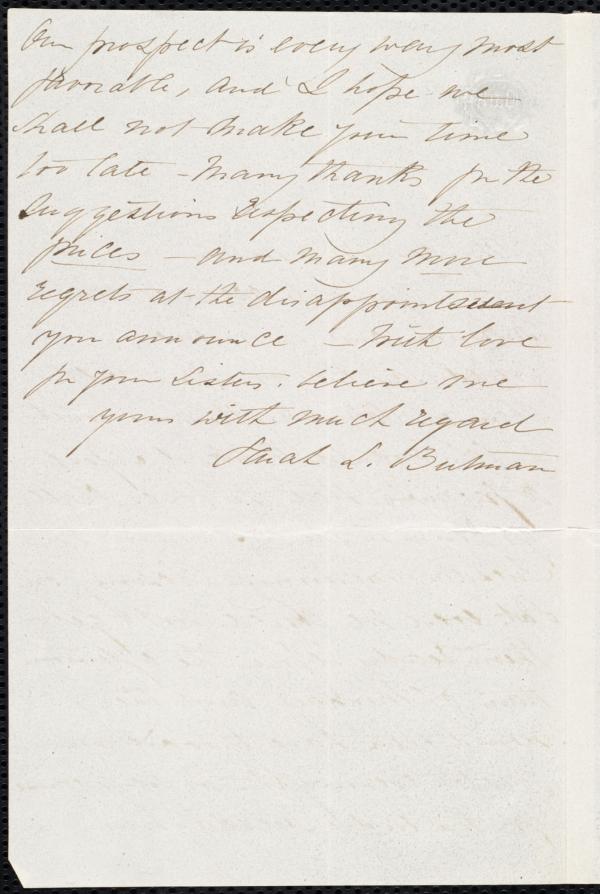 Our prospect is every way most
favorable, and I hope we
shall not make your time
too late - Many thanks for the
suggestions respecting the
prices - and many more
regrets at the disappointment
you announce - With love
for your Sisters. believe me
yours with much regard
Sarah L. Butman